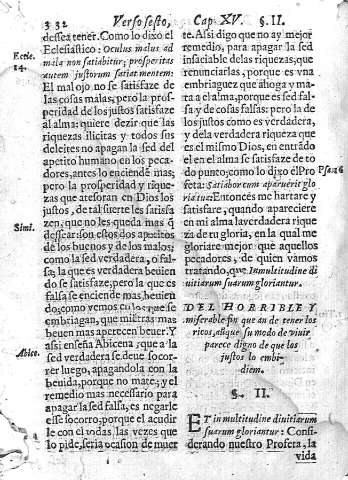 332 Verso sesto, Cap. XV. §. II.
dessea tener. Como lo dixo el
Eclesiástico: Oculus malus ad
mala non satiabitur; prosperitas
autem justorum satiat mentem:
El mal ojo no se satisfaze de
las cosas malas, pero la pros-
peridad de los justos satisfaze
al alma: quiere dezir que las
riquezas ilicitas y todos sus
deleites no apagan la sed del
apetito humano en los peca-
dores, antes lo enciende mas;
pero la prosperidad y rique-
zas que atesoran en Dios los
justos, de tal suerte les satisfa
zen, que no les queda mas q̃
dessear: son estos dos apetitos
de los buenos y de los malos;
como la sed verdadera, o fal-
sa; la que es verdadera beuien
do se satisfaze, pero la que es
falsa se enciende mas, beuien
do; como vemos en los que se
embriagan, que mientras mas
beuen mas aparecen beuer. Y
assi enseña Abicena; que a la
sed verdadera se deue socor-
rer luego, apagandola con la
beuida, porque no mate; y el
remedio mas necessario para
apagar la sed falsa, es negarle
esse socorro, porque el acudir
le con el todas las vezes que
lo pide, seria ocasion de muer
Eccle.
14.
Simi.
Abice.
te. Assi digo que no ay mejor
remedio, para apagar la sed
insaciable delas riquezas, que
renunciarlas, porque es vna
embriaguez que ahoga y ma-
ta el alma, porque es sed fal-
sa, y de cosas falsas: pero la de
los justos como es verdadera,
y dela verdadera riqueza que
es el mismo Dios, en entrãdo
el en el alma se satisfaze de to
do punto; como lo dixo el Pro
feta: Satiabor cum apparuerit glo
ria tue: Entonces me hartare y
satisfare, quando apareciere
en mi alma la verdadera rique
za de tu gloria, en la qual me
gloriare mejor que aquellos
pecadores, de quien vamos
tratando, que In multitudine di
uitiarum suarum gloriantur.
Psa. 16
DEL HORRIBLE Y
miserable fin que an de tener los
ricos, aũque su modo de viuir
parece digno de que los
justos lo embi-
dien.
§. II.
ET in multitudine diuitiarum
suarum gloriantur: Consi-
derando nuestro Profeta, la
vida